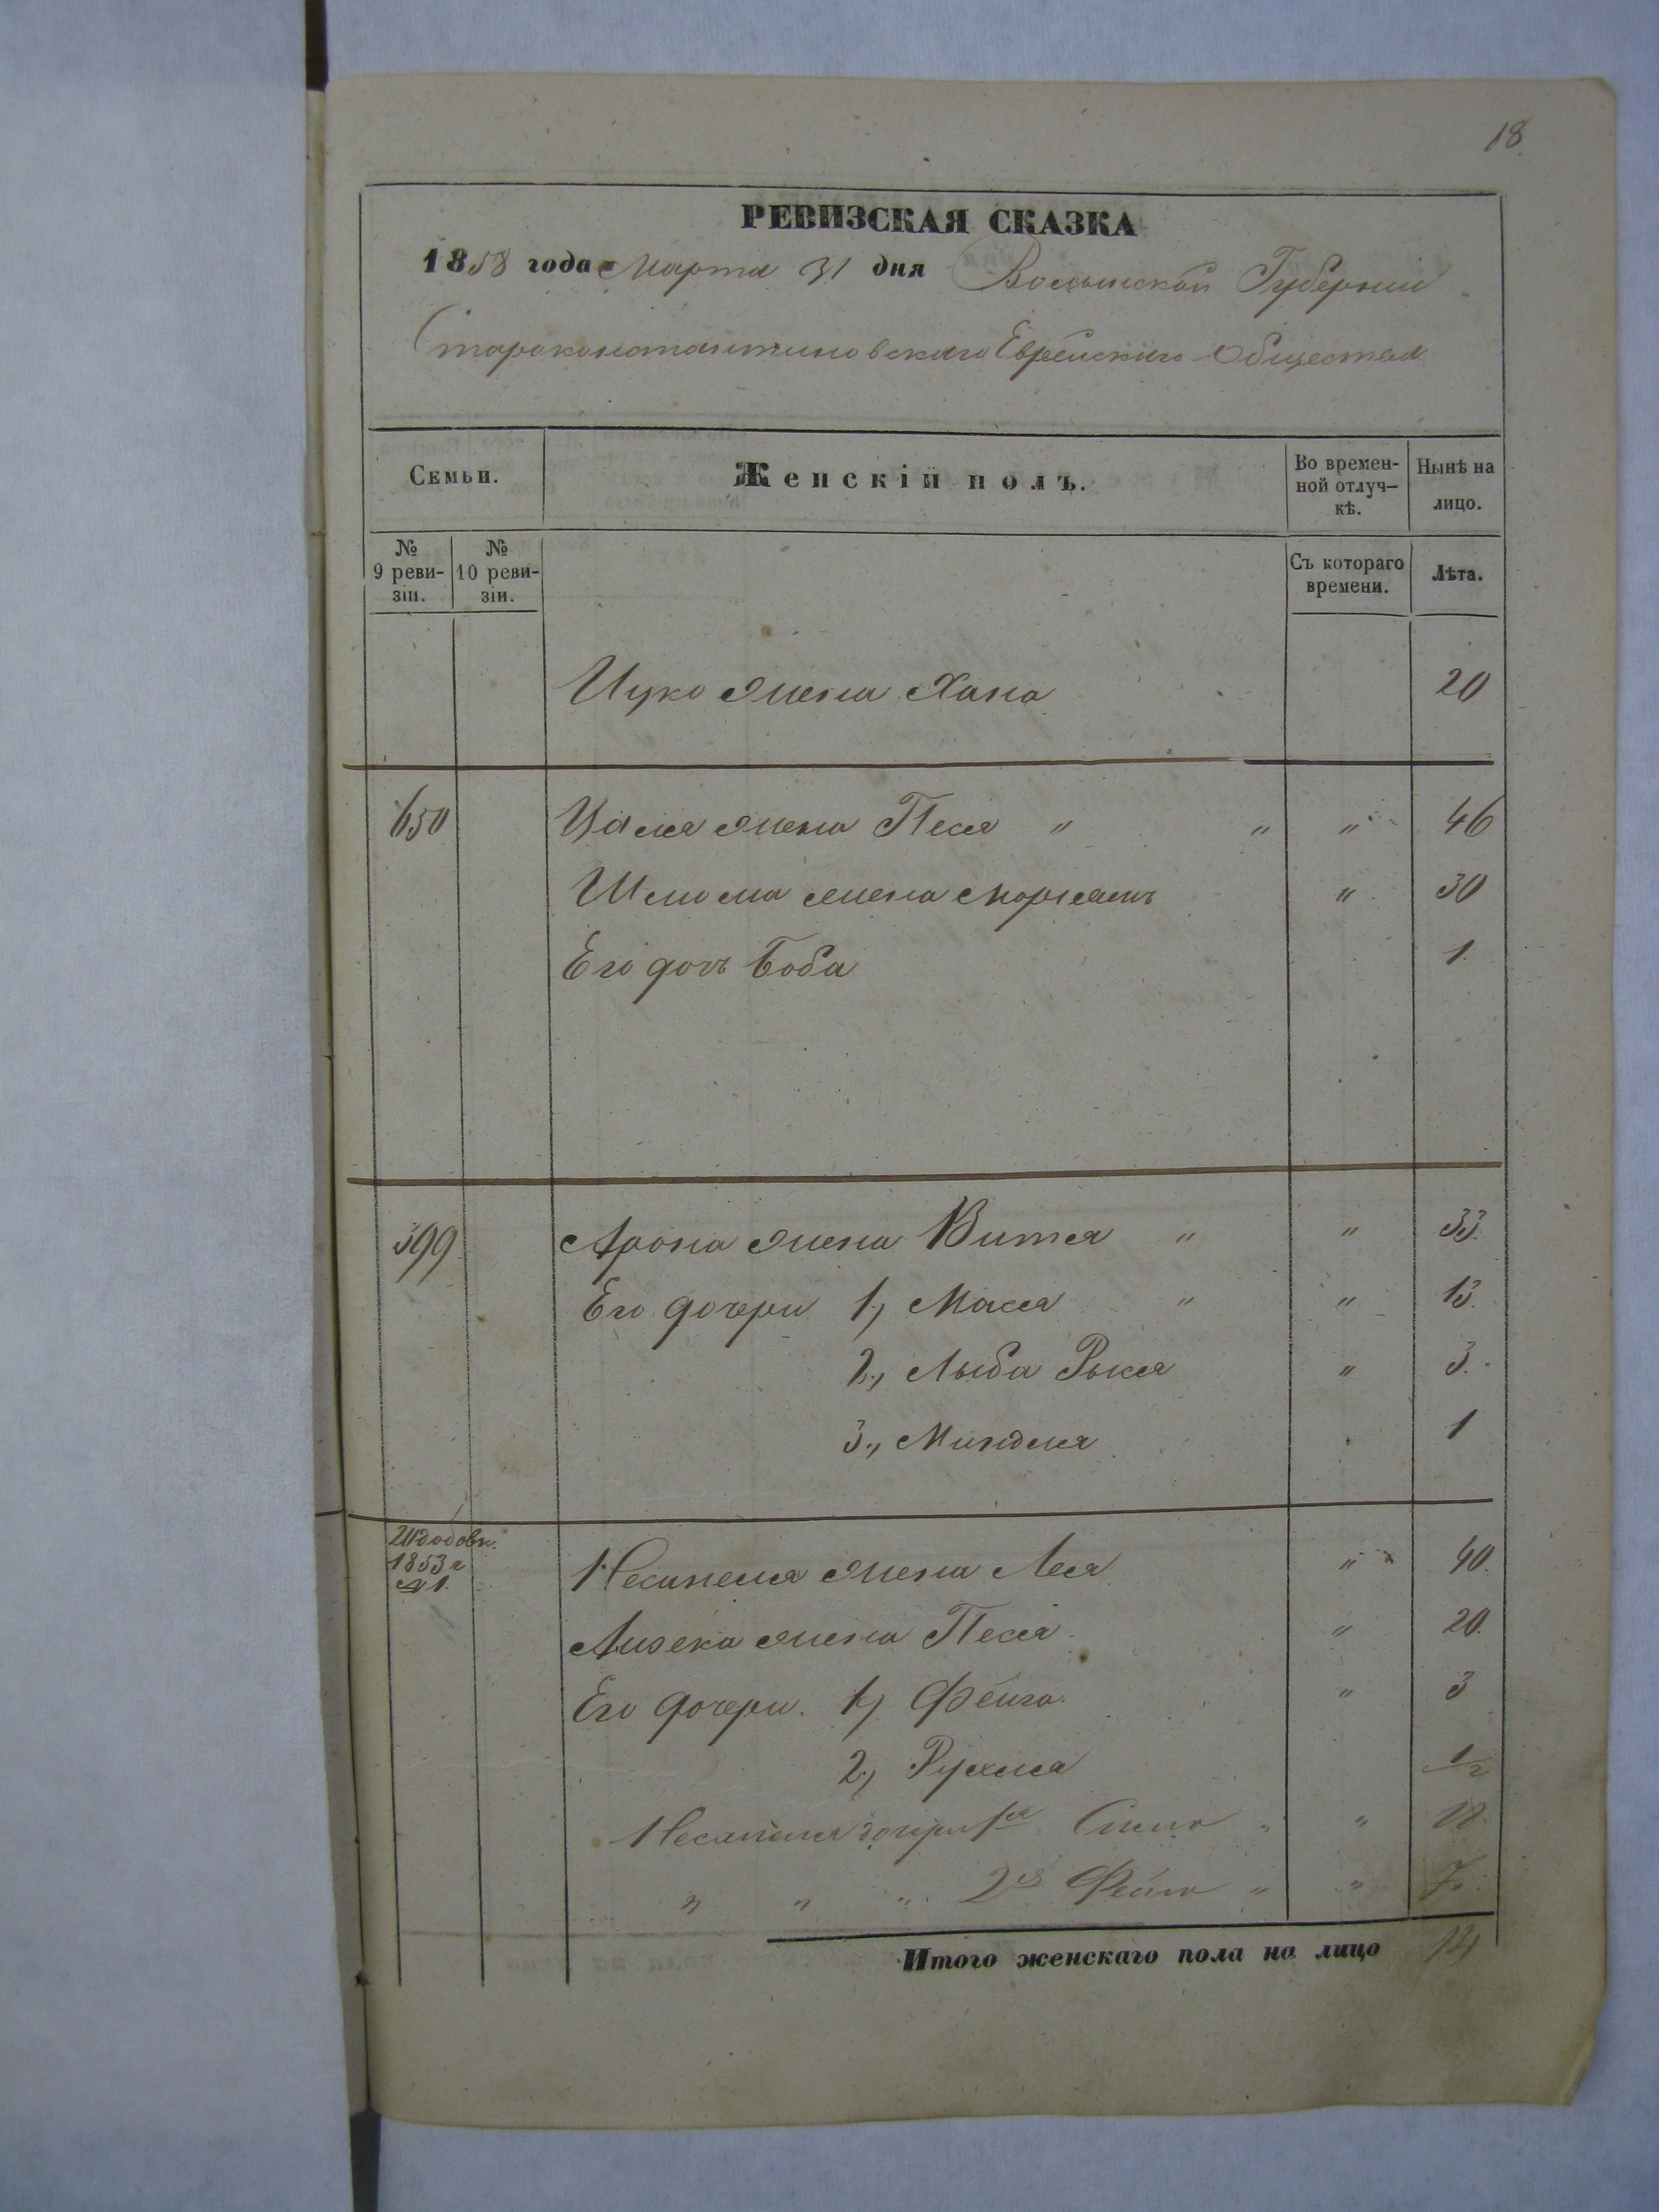 18
РЕВИЗСКАЯ СКАЗКА
1858 года Марта 31 дня Волынской Губернии
Староконстантиновскаго Еврейскаго Общества
Семьи.
Женскій полъ.
Во времен-
ной отлуч-
кѣ.
Нынѣ на
лицо.
№
9 реви-
зіи.
№
10 реви-
зіи.
Съ котораго
времени.
Лѣта.
Ицко жена Хана 20
650 жена Песя " " " 46
Шлиома жена " 30
Его дочь Боба 1
399 Арона жена Витя " " 33.
Его дочери 1, Мася " " 13.
2., Лыба Рыся " 3.
3., Миндля 1
1853 г
№ 1. жена Лея " 40.
Лизека жена Песя " 20.
Его дочери. 1, Фейга. " 3
2, Рухля 1/2
дочери 1я " " 18.
" " " 2я Фейга " " 7.
Итого женскаго пола на лицо 14